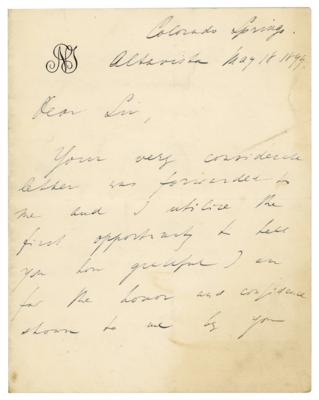 Colorado Springs.
Altavista May 18 1899.
Dear Sir,
Your very considerate
letter was forwarded to
me and I utilize the
first opportunity to tell
you how grateful I am
for the honor and confidence
shown to me by you